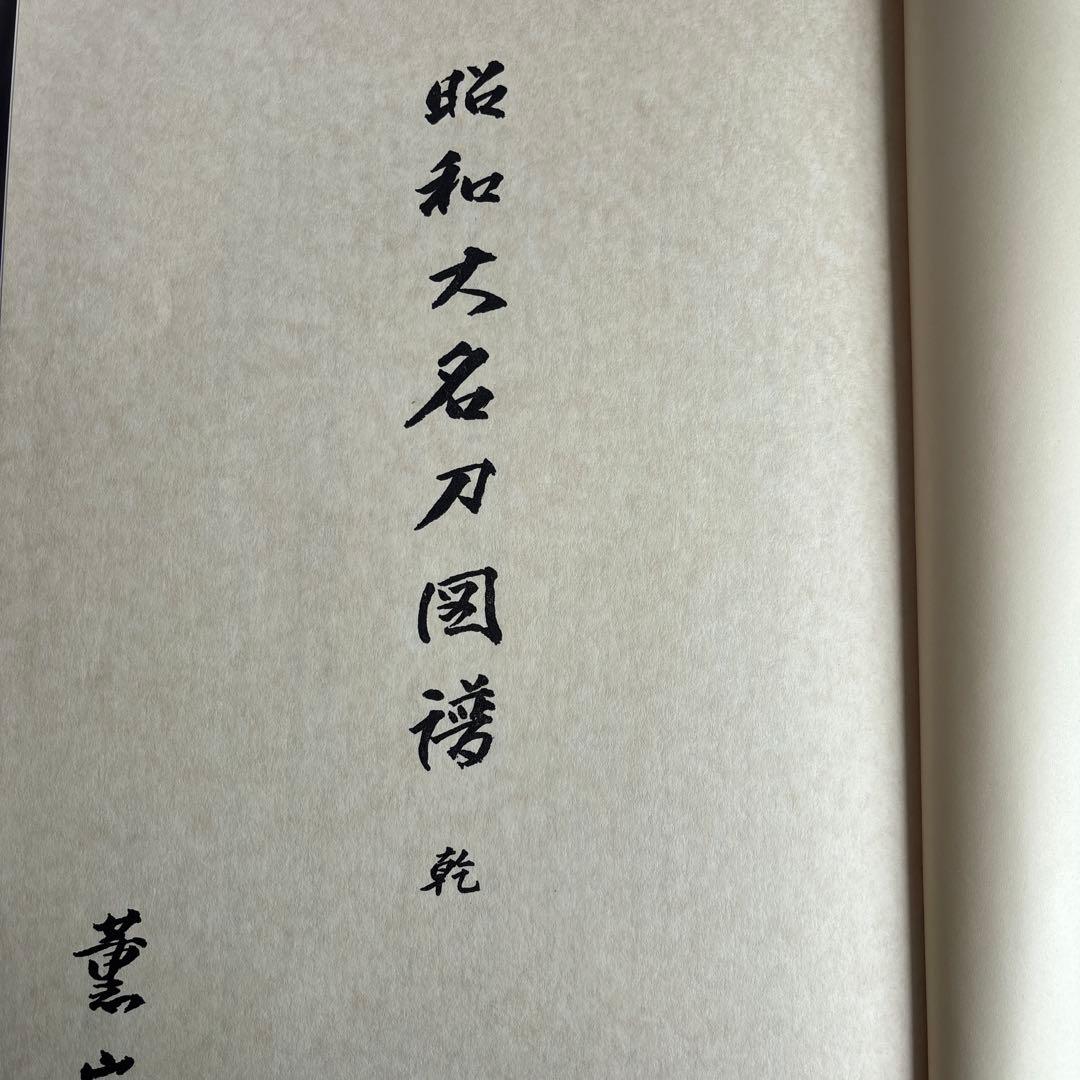 昭和大名刀図譜 乾
薫山